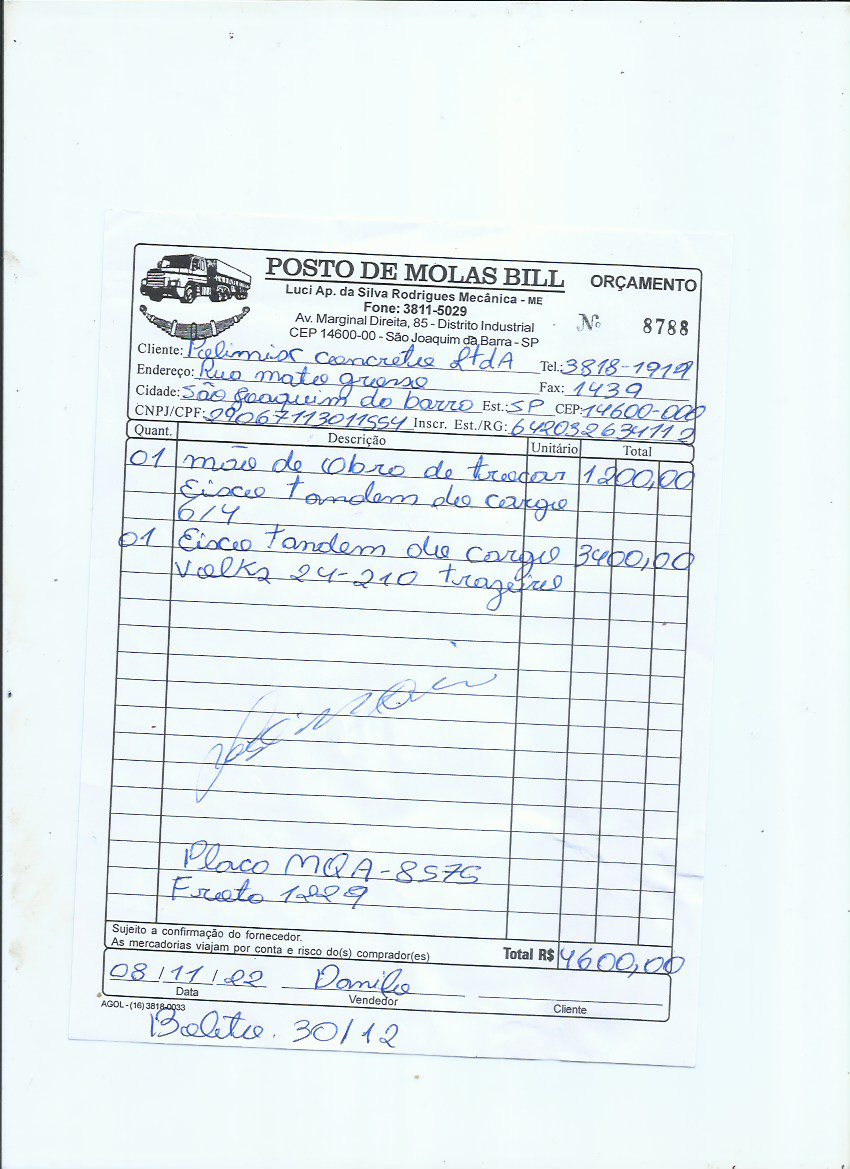 POSTO DE MOLAS BILL
ORÇAMENTO
Luci Ap. da Silva Rodrigues Mecânica - ME
Fone: 3811-5029
Av. Marginal Direita, 85 - Distrito Industrial
CEP 14600-00 - São Joaquim da Barra - SP
Nº 8788
Cliente: Polimix concreto LtdA Tel.: 3818-1919
Endereço: Rua mato grosso Fax: 1439
Cidade: São Joaquim da barra Est.: SP CEP: 14600-000
CNPJ/CPF: 29067113011554 Inscr. Est./RG: 642032634112
Quant. Descrição Unitário Total
01 mão de Obra de trocar 1200,00
Eixo tandem do cargo
6/4
01 Eixo tandem do cargo 3400,00
Volks 24-210 trazeiro
Placa MQA-8575
Frota 1229
Sujeito a confirmação do fornecedor.
As mercadorias viajam por conta e risco do(s) comprador(es)
Total R$ 4600,00
08/11/22 Danilo
Data Vendedor Cliente
AGOL - (16) 3818-0033
Boleto. 30/12